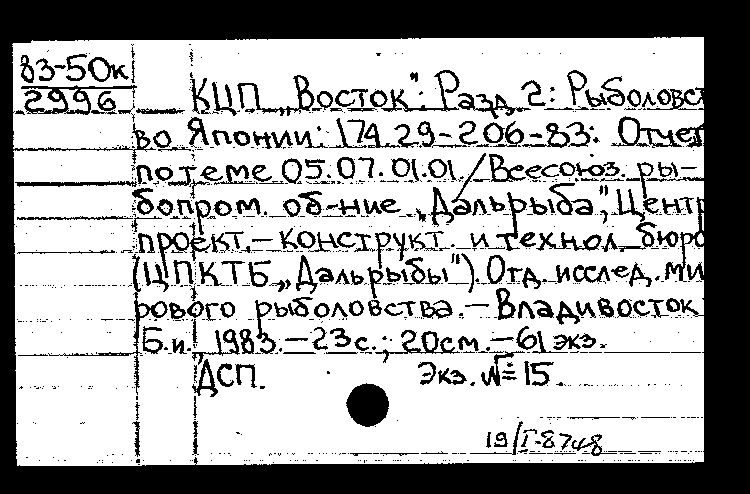 83-50к
2996
КЦП „Восток": Разд. 2: Рыболовст
во Японии: 174.29-206-83: Отчет
по теме 05.07.01.01. / Всесоюз. ры-
бопром. об-ние „Дальрыба", Центр
проект.-конструкт. и технол. бюро
(ЦПКТБ „Дальрыбы"). Отд. исслед. ми
рового рыболовства.-Владивосток
Б.и., 1983.-23с.; 20см.-61 экз.
ДСП. Экз. № 15.
19/I-8748